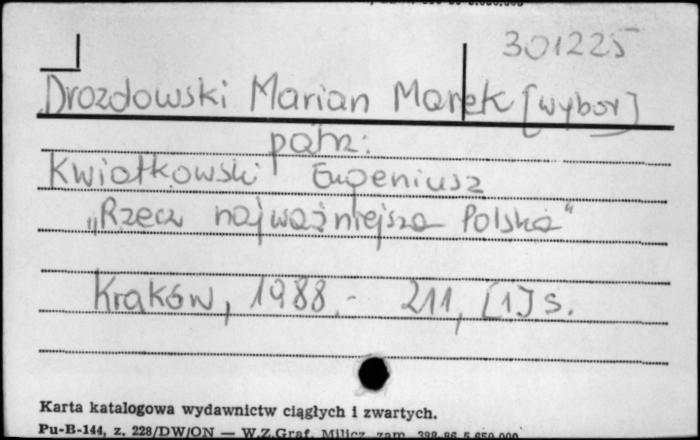 301225
Drozdowski Marian Marek [wybor]
patrz:
Kwiatkowski Eugeniusz
„Rzecz najważniejsza Polska“
Kraków, 1988.- 211, [1] s.
Karta katalogowa wydawnictw ciągłych i zwartych.
Pu-B-144, z. 228/DW/ON — W.Z.Graf. Milicz, zam. 398-86 5.650.000